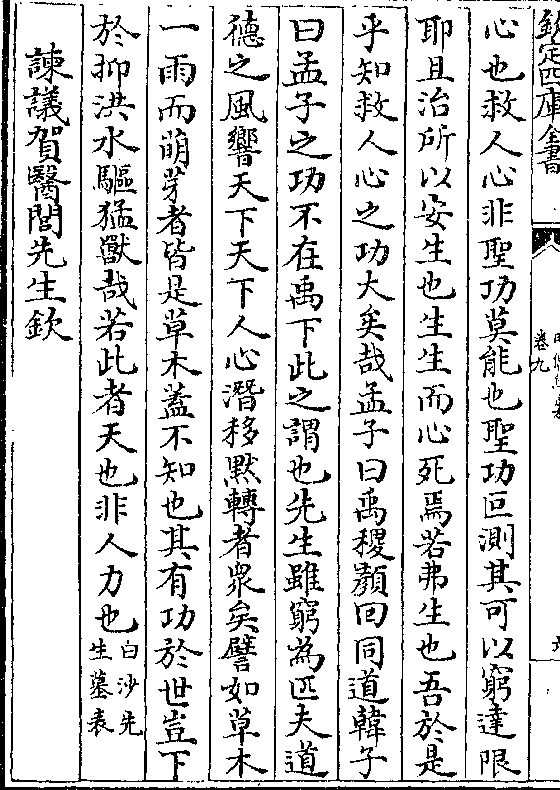 欽定四庫全書
卷九
心也救人心非聖功莫能也聖功叵測其可以窮達限
耶且治所以安生也生生而心死焉若弗生也吾於是
乎知救人心之功大矣哉孟子曰禹稷顏回同道韓子
曰孟子之功不在禹下此之謂也先生雖窮為匹夫道
德之風響天下天下人心潛移默轉者衆矣譬如草木
一雨而萌芽者皆是草木蓋不知也其有功於世豈下
於抑洪水驅猛獸哉若此者天也非人力也白沙先
生墓表
諫議賀醫閭先生欽